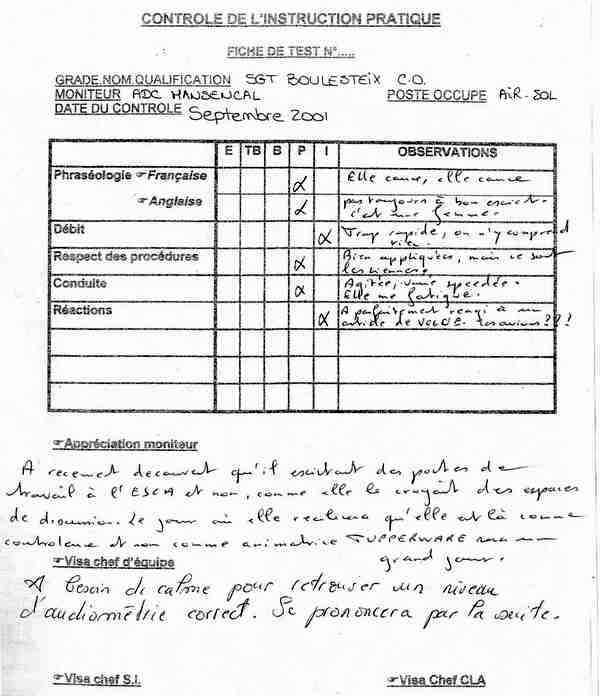 CONTROLE DE L'INSTRUCTION PRATIQUE
FICHE DE TEST N°.....
GRADE.NOM.QUALIFICATION SGT BOULESTEIX C.O.
MONITEUR ADC MANSENCAL POSTE OCCUPE AIR-SOL
DATE DU CONTROLE Septembre 2001
E TB B P I OBSERVATIONS
Phraséologie ☞ Française Elle cause, elle cause
☞ Anglaise pas toujours à bon escient.
c'est une femme.
Débit Trop rapide, on n'y comprend
rien.
Respect des procédures Bien appliquées, mais ce sont
les siennes.
Conduite Agitée, speedée.
Elle me fatigue.
Réactions A parfaitement réagi à un
article de VOGUE. Les avions???
☞ Appréciation moniteur
A récemment découvert qu'il existait des postes de
travail à l'ESCA et non, comme elle le croyait des espaces
de discussion. Le jour où elle réalisera qu'elle est là comme
contrôleuse et non comme animatrice TUPPERWARE sera un
grand jour.
☞ Visa chef d'équipe
A besoin de calme pour retrouver un niveau
d'audiométrie correct. Se prononcera par la suite.
☞ Visa chef S.I. ☞ Visa Chef CLA